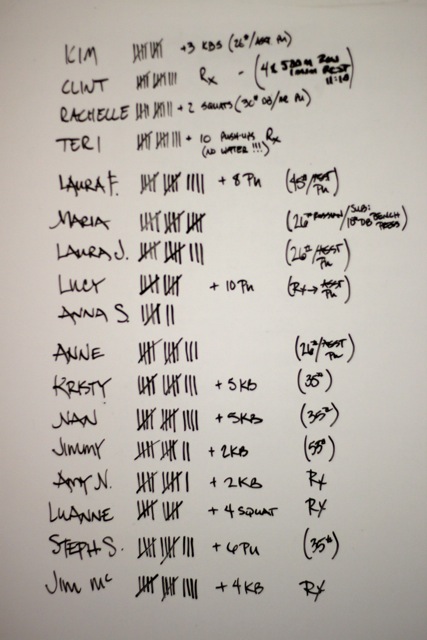 KIM +3 KBS (26#/ASST PU)
CLINT Rx - (4 x 500m ROW
1 min REST
11:10)
RACHELLE + 2 SQUATS (30# DB/NR PU)
TERI + 10 PUSH-UPS Rx
(NO WATER !!!)
LAURA F. + 8 PU (45#/ASST PU)
MARIA (26# RUSSIAN/SUB: 18# DB BENCH PRESS)
LAURA J. (26#/ASST PU)
LUCY + 10 PU (Rx → ASST PU)
ANNA S.
ANNE (26#/ASST PU)
KRISTY + 5 KB (35#)
NAN + 5KB (35#)
JIMMY + 2KB (55#)
AMY N. + 2KB Rx
LUANNE + 4 SQUAT RX
STEPH S. + 6 PU (35#)
JIM Mc + 4KB RX